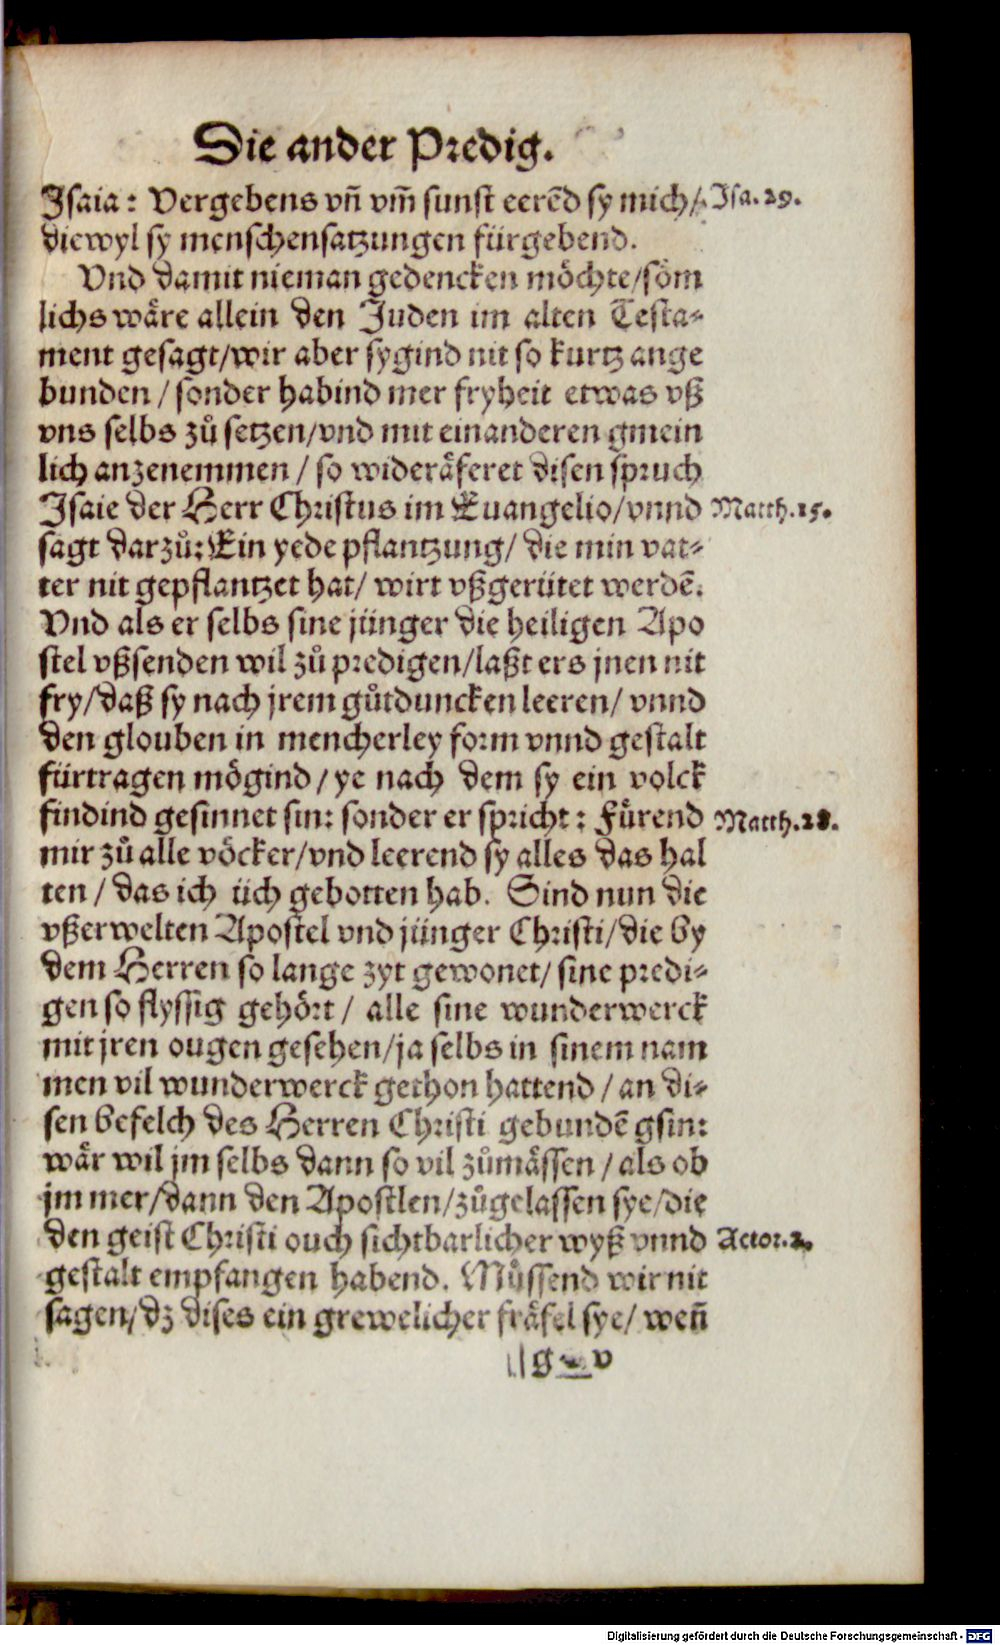 Die ander Predig.
Isaia: Vergebens vñ vm̃ sunst eerẽd sy mich/ Isa. 29.
diewyl sy menschensatzungen fürgebend.
Vnd damit nieman gedencken möchte/söm
lichs wäre allein den Juden im alten Testa-
ment gesagt/wir aber sygind nit so kurtz ange
bunden / sonder habind mer fryheit etwas vß
vns selbs zů setzen/vnd mit einanderen gmein
lich anzenemmen / so wideräferet disen spruch
Isaie der Herr Christus im Euangelio/vnnd Matth.15.
sagt darzů: Ein yede pflantzung/ die min vat-
ter nit gepflantzet hat/ wirt vßgerütet werdẽ.
Vnd als er selbs sine jünger die heiligen Apo
stel vßsenden wil zů predigen/laßt ers jnen nit
fry/daß sy nach jrem gůtduncken leeren/ vnnd
den glouben in mencherley form vnnd gestalt
fürtragen mögind/ye nach dem sy ein volck
findind gesinnet sin: sonder er spricht: Fůrend Matth.28.
mir zů alle völcker/vnd leerend sy alles das hal
ten / das ich üch gebotten hab. Sind nun die
vßerwelten Apostel vnd jünger Christi/die by
dem Herren so lange zyt gewonet/ sine predi-
gen so flyssig gehört / alle sine wunderwerck
mit jren ougen gesehen/ja selbs in sinem nam
men vil wunderwerck gethon hattend / an di-
sen befelch des Herren Christi gebundẽ gsin:
wär wil jm selbs dann so vil zůmässen / als ob
jm mer/dann den Apostlen/zůgelassen sye/die
den geist Christi ouch sichtbarlicher wyß vnnd Actor.2.
gestalt empfangen habend. Müssend wir nit
sagen/dz dises ein grewelicher fräfel sye/ weñ
g v
Digitalisierung gefördert durch die Deutsche Forschungsgemeinschaft - DFG